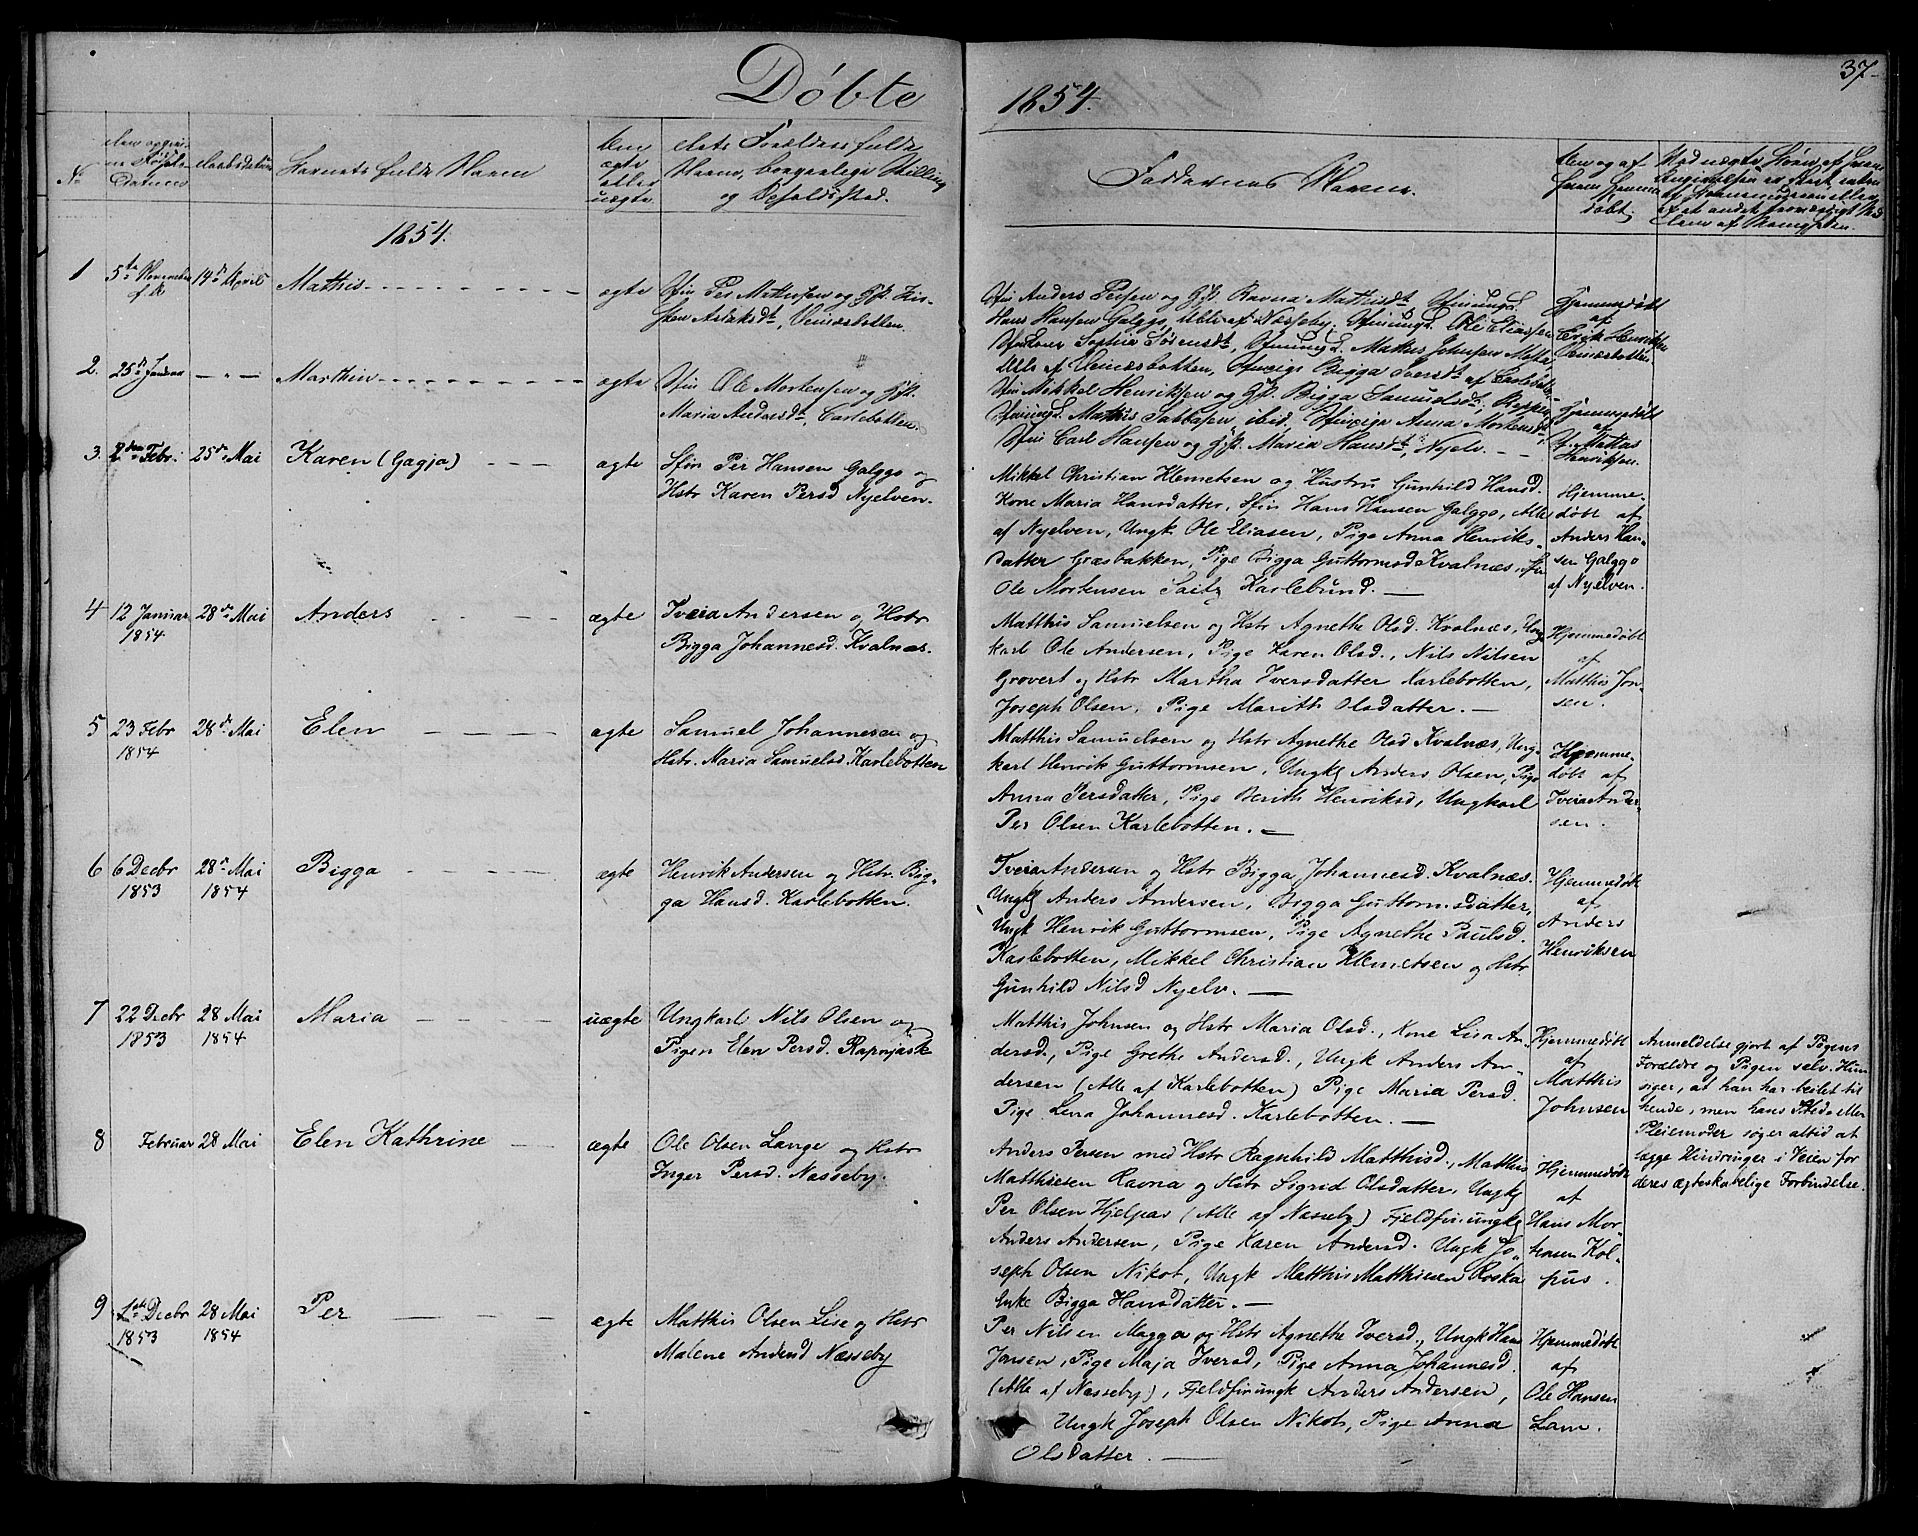 Døbte
1854.
37
No
den opgivne Fødsels-Datum
Daabsdatum
Barnets fulde Navn
Om ægte eller uægte
dets Forældres fulde Navne, borgerlige Stilling og Opholdssted.
Faddernes Navne.
Om og af hvem hjemmedøbt.
1854.
1
5te November f.A.
14de April
Mathis
ægte
Sfin Per Mathisen og Hst. Kir-
sten Aslaksdtr, Veinæsbotten.
Sfin Anders Persen og Hst. Ravna Mathisdtr,
Hans Hansen Galggo, Alle af Næsseby, Ole Eliassen
Sophia Sørensdtr, Mathis Johnsen
Alle af Veinæsbotten, Bigga
Hjemmedøbt
af
Erik Henriksen
Veinæsbotten
2.
25de Januar
— " —
Marthin
ægte
Sfin Ole Mortensen og Hst.
Maria Andersdtr, Carlebotten.
Sfin Mikkel Henriksen og Hst. Bigga Samuelsdtr,
Mathis Sabbasen, ibid, Anna Mortensdtr,
Sfin Carl Hansen og Hst. Maria Hansdtr, Nyelv. —
Hjemmedøbt
af
Mathis
Henriksen.
3.
2den Febr.
25de Mai
Karen (Gagja)
ægte
Sfin Per Hansen Galggo og
Hstr Karen Persd Nyelven.
Mikkel Christian Klemetsen og Hustru Gunhild Hansd.
Kone Maria Hansdatter, Sfin Hans Hansen Galggo, Alle
af Nyelven, Ungk Ole Eliasen, Pige Anna Henriks-
datter Græsbakken, Pige Bigga Guttormsd Kvalnæs, Sfin
Ole Mortensen Saitz Karlebund. —
Hjemme-
døbt af
Anders Han-
sen Galggo
af Nyelven.
4
12 Januar
1854
28de Mai
Anders
ægte
Iveia Andersen og Hstr
Bigga Johannesd. Kvalnæs.
Matthis Samuelsen og Hstr Agnethe Olsd. Kvalnæs, Ung-
karl Ole Andersen, Pige Karen Olsd., Nils Nilsen
Grovert og Hstr Martha Iversdatter Karlebotten,
Joseph Olsen, Pige Marith Olsdatter. —
Hjemmedøbt
af
Matthis Jon-
sen.
5
23 Febr
1854
28de Mai
Elen
ægte
Samuel Johannesen og
Hstr. Maria Samuelsd. Karlebotten
Matthis Samuelsen og Hstr Agnethe Olsd Kvalnæs, Ung-
karl Henrik Guttormsen, Ungk Anders Olsen, Pige
Anna Persdatter, Pige Berith Henriksd, Ungkarl
Per Olsen Karlebotten. —
Hjemme-
døbt af
Iveia Ander-
sen.
6
6 Decbr
1853
28de Mai
1854
Bigga
ægte
Henrik Andersen og Hstr. Big-
ga Hansd. Karlebotten.
Iveia Andersen og Hstr Bigga Johannesd. Kvalnæs.
Ungk Anders Andersen, Bigga Guttormsdatter,
Ungk Henrik Guttormsen, Pige Agnethe Paulsd.
Karlebotten, Mikkel Christian Klemetsen og Hstr
Gunhild Nilsd Nyelv. —
Hjemmedøbt
af
Anders
Henriksen
7
22 Decbr
1853
28 Mai
1854
Maria
uægte
Ungkarl Nils Olsen og
Pigen Elen Persd. Rapnjask
Matthis Johnsen og Hstr Maria Olsd., Kone Lisa An-
dersd., Pige Grethe Andersd., Ungk Anders An-
dersen (Alle af Karlebotten) Pige Maria Persd.
Pige Lena Johannesd. Karlebotten. —
Hjemmedøbt
af
Matthis
Johnsen
Anmeldelse gjort af Pigens
Forældre og Pigen selv. Hun
siger, at han har beilet til
hende, men hans Sted eller
Pleiemoder søger altid at
lægge Hindringer i Veien for
deres ægteskabelige Forbindelse.
8
Februar
28 Mai
Elen Kathrine
ægte
Ole Olsen Lange og Hstr
Inger Persd. Næsseby.
Anders Persen med Hstr Ragnhild Matthisd., Matthis
Matthiesen Ravna og Hstr Sigrid Olsdatter, Ungk
Per Olsen Hjelpav (Alle af Næsseby) Fjeldfinungk
Anders Andersen, Pige Karen Andersd. Ungk Jo-
seph Olsen Nikot, Ungk Matthis Matthiesen Roska
Enke Bigga Hansdatter. —
Hjemmedøbt
af
Hans Mor-
tensen Kol-
pus.
9
1ste Decbr
1853
28 Mai
1854
Per
ægte
Matthis Olsen Lise og Hstr
Malene Andersd Næsseby
Per Nilsen Magga og Hstr Agnethe Iversd., Ungk Hans
Jonsen, Pige Maja Iversd, Pige Anna Johannesd.
(Alle af Næsseby), Fjeldfinungk Anders Andersen,
Ungk Joseph Olsen Nikot, Pige Anna
Olsdatter. —
Hjemmedøbt
af
Ole Hansen
Lam.